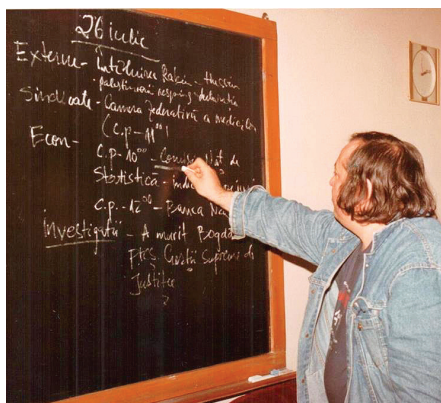 26 iulie
Externe - Întîlnirea Rabin - Hussein
palestinienii resping declarația
Sindicate - Camera federativă a medicilor
(C.p - 11⁰⁰)
Econ - C.p - 10⁰⁰ - Comisia Naț de
Statistică -
C.p. - 12⁰⁰ - Banca Na
Investigații - A murit Bogdan
Pres Curții Supreme de
Justiție